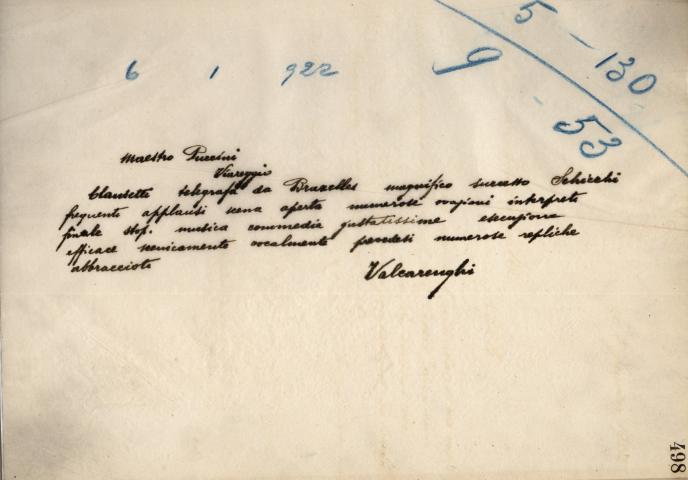 5 - 130
9 - 53
6 1 922
Maestro Puccini
Viareggio
Clausetti telegrafa da Bruxelles magnifico successo Schicchi
frequenti applausi scena aperta numerose ovazioni interpreti
finale stop. musica commedia gustatissime esecuzione
efficace scenicamente vocalmente prevedesi numerose repliche
abbraccioti
Valcarenghi
498